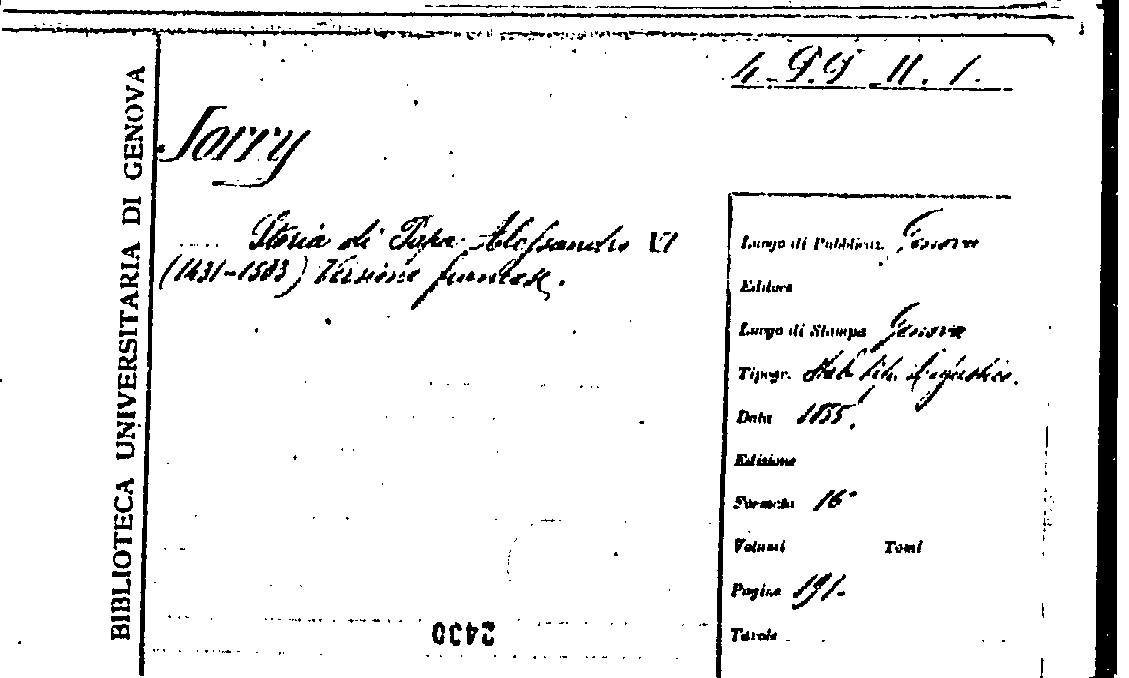 4. P.P II. 1.
BIBLIOTECA UNIVERSITARIA DI GENOVA
Jorry
Storia di Papa Alessandro VI
(1431-1503) Versione francese.
Luogo di Pubblicaz. Genova
Editore
Luogo di Stampa Genova
Tipogr. Stab. tip. Ligustico.
Data 1855.
Edizione
Formato 16°
Volumi Tomi
Pagine 191-
Tavole
2430